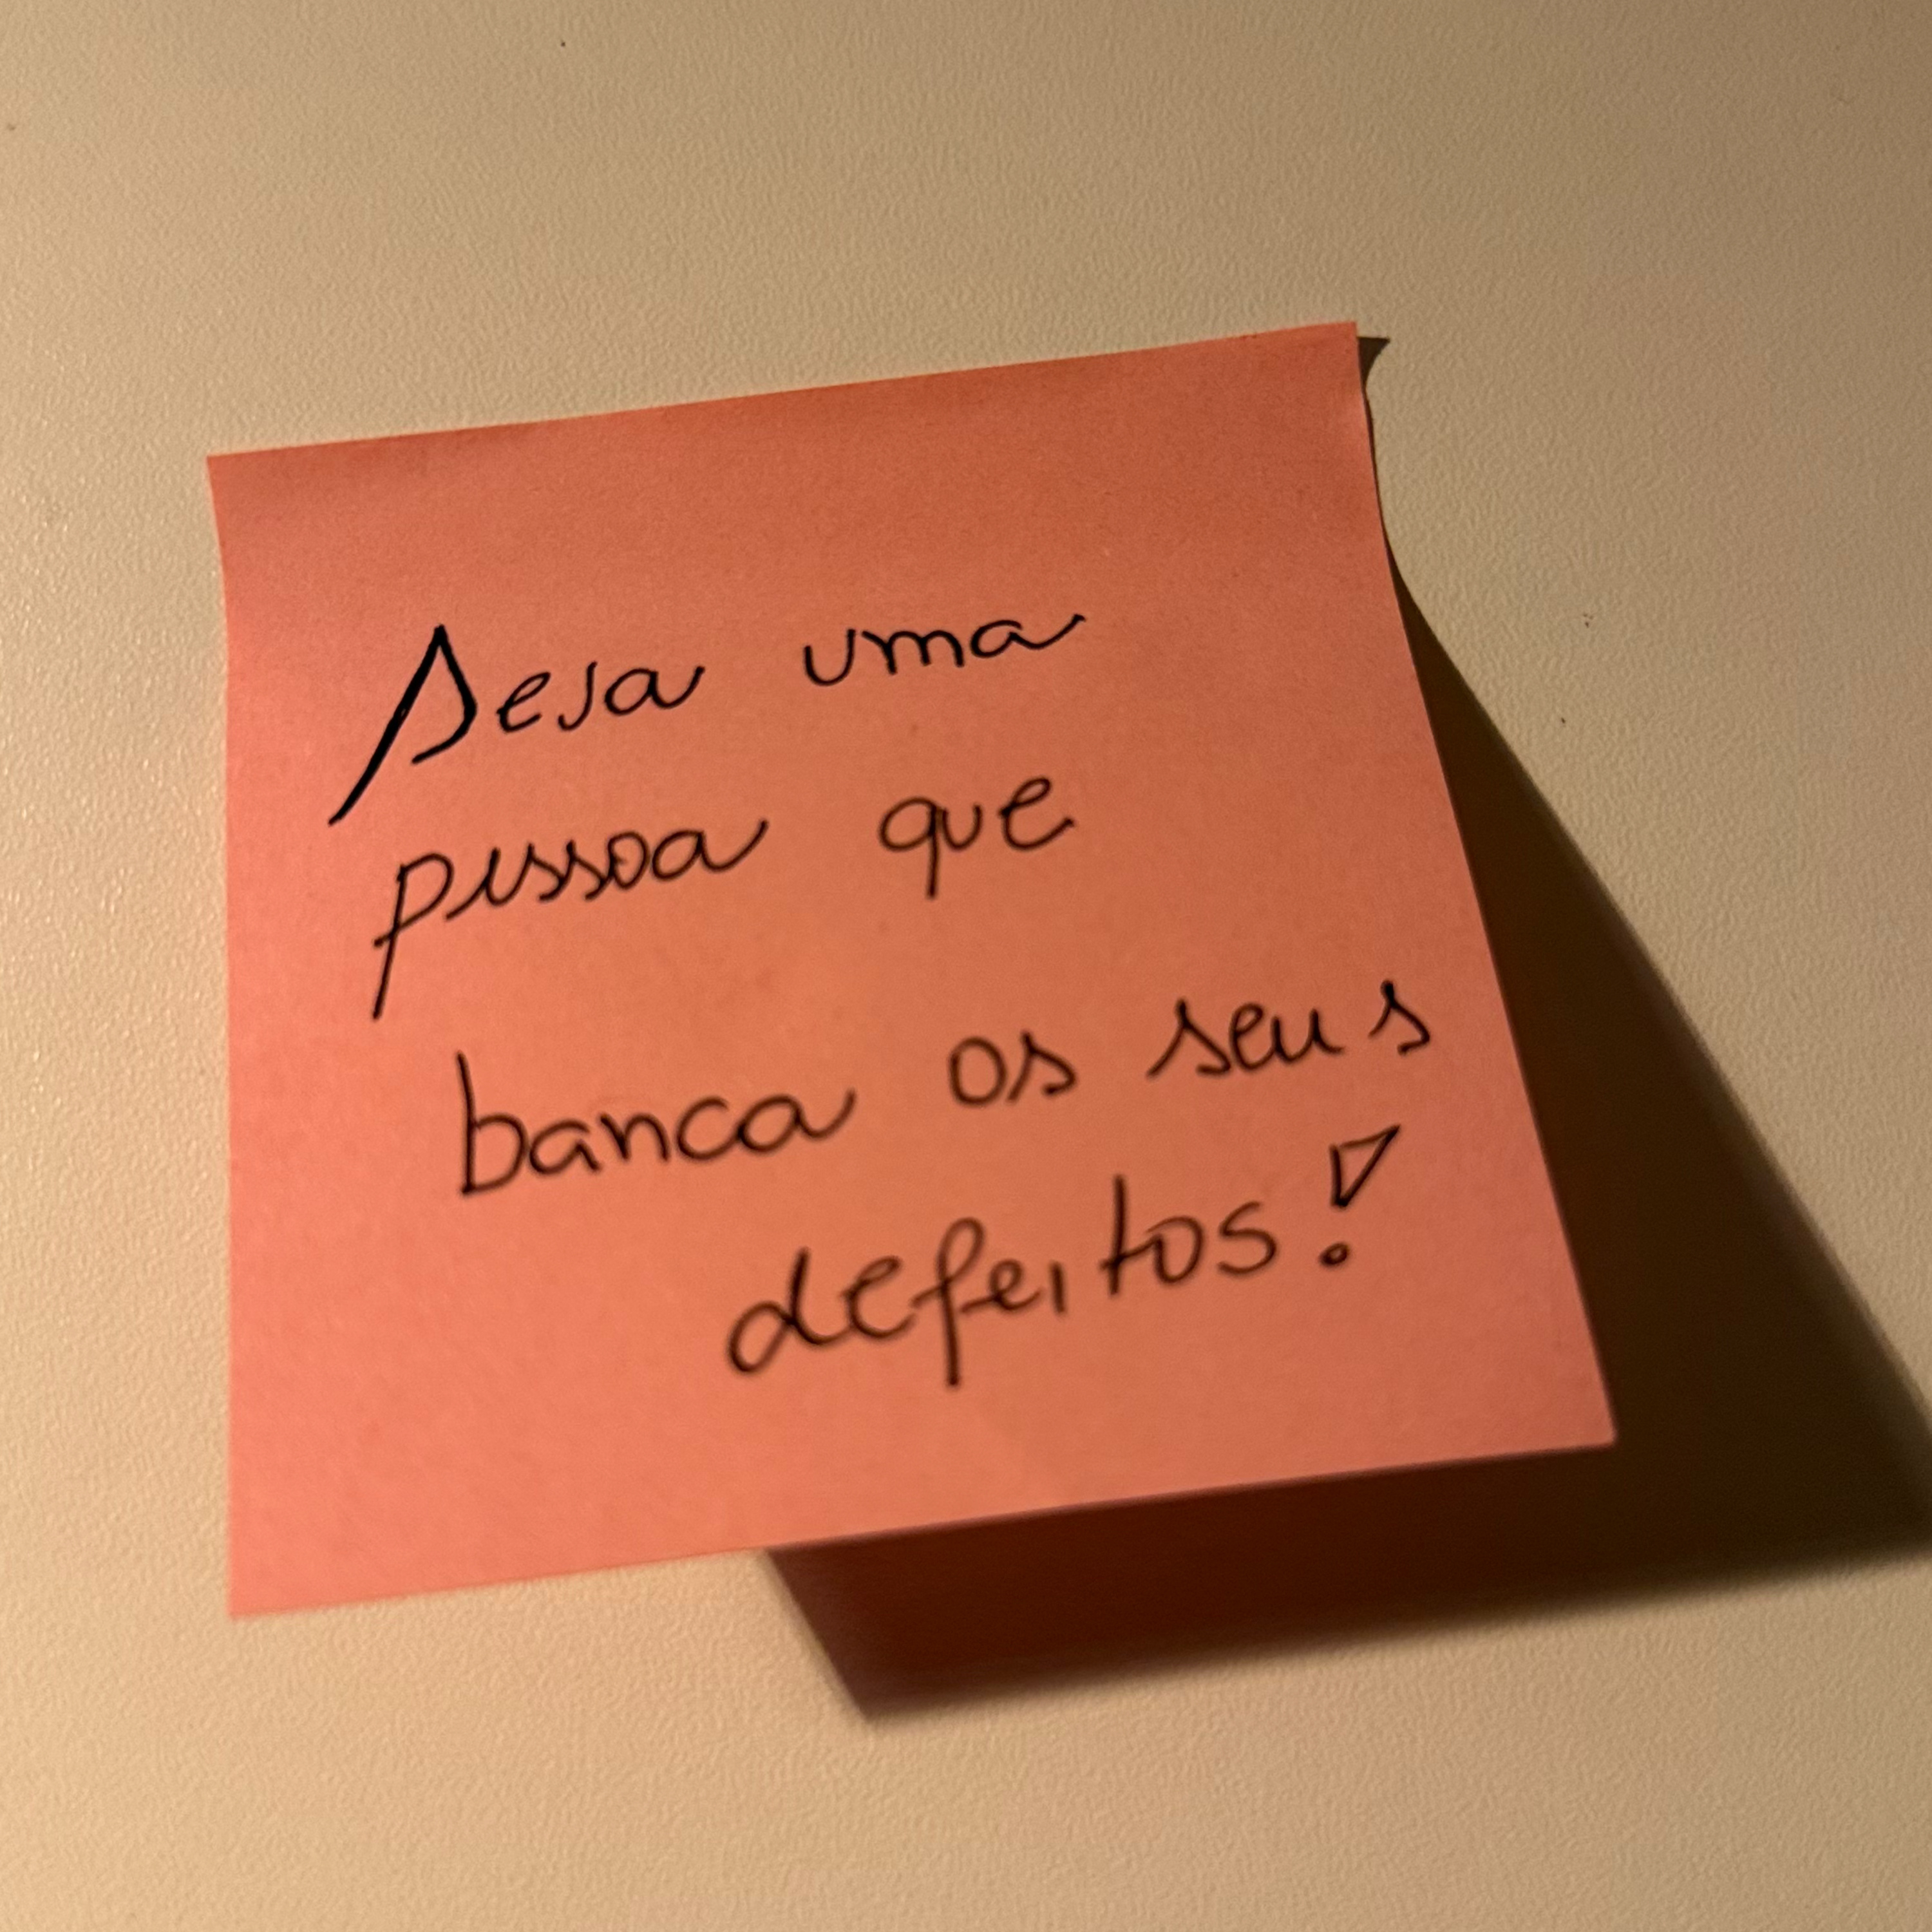 Seja uma
pessoa que
banca os seus
defeitos!